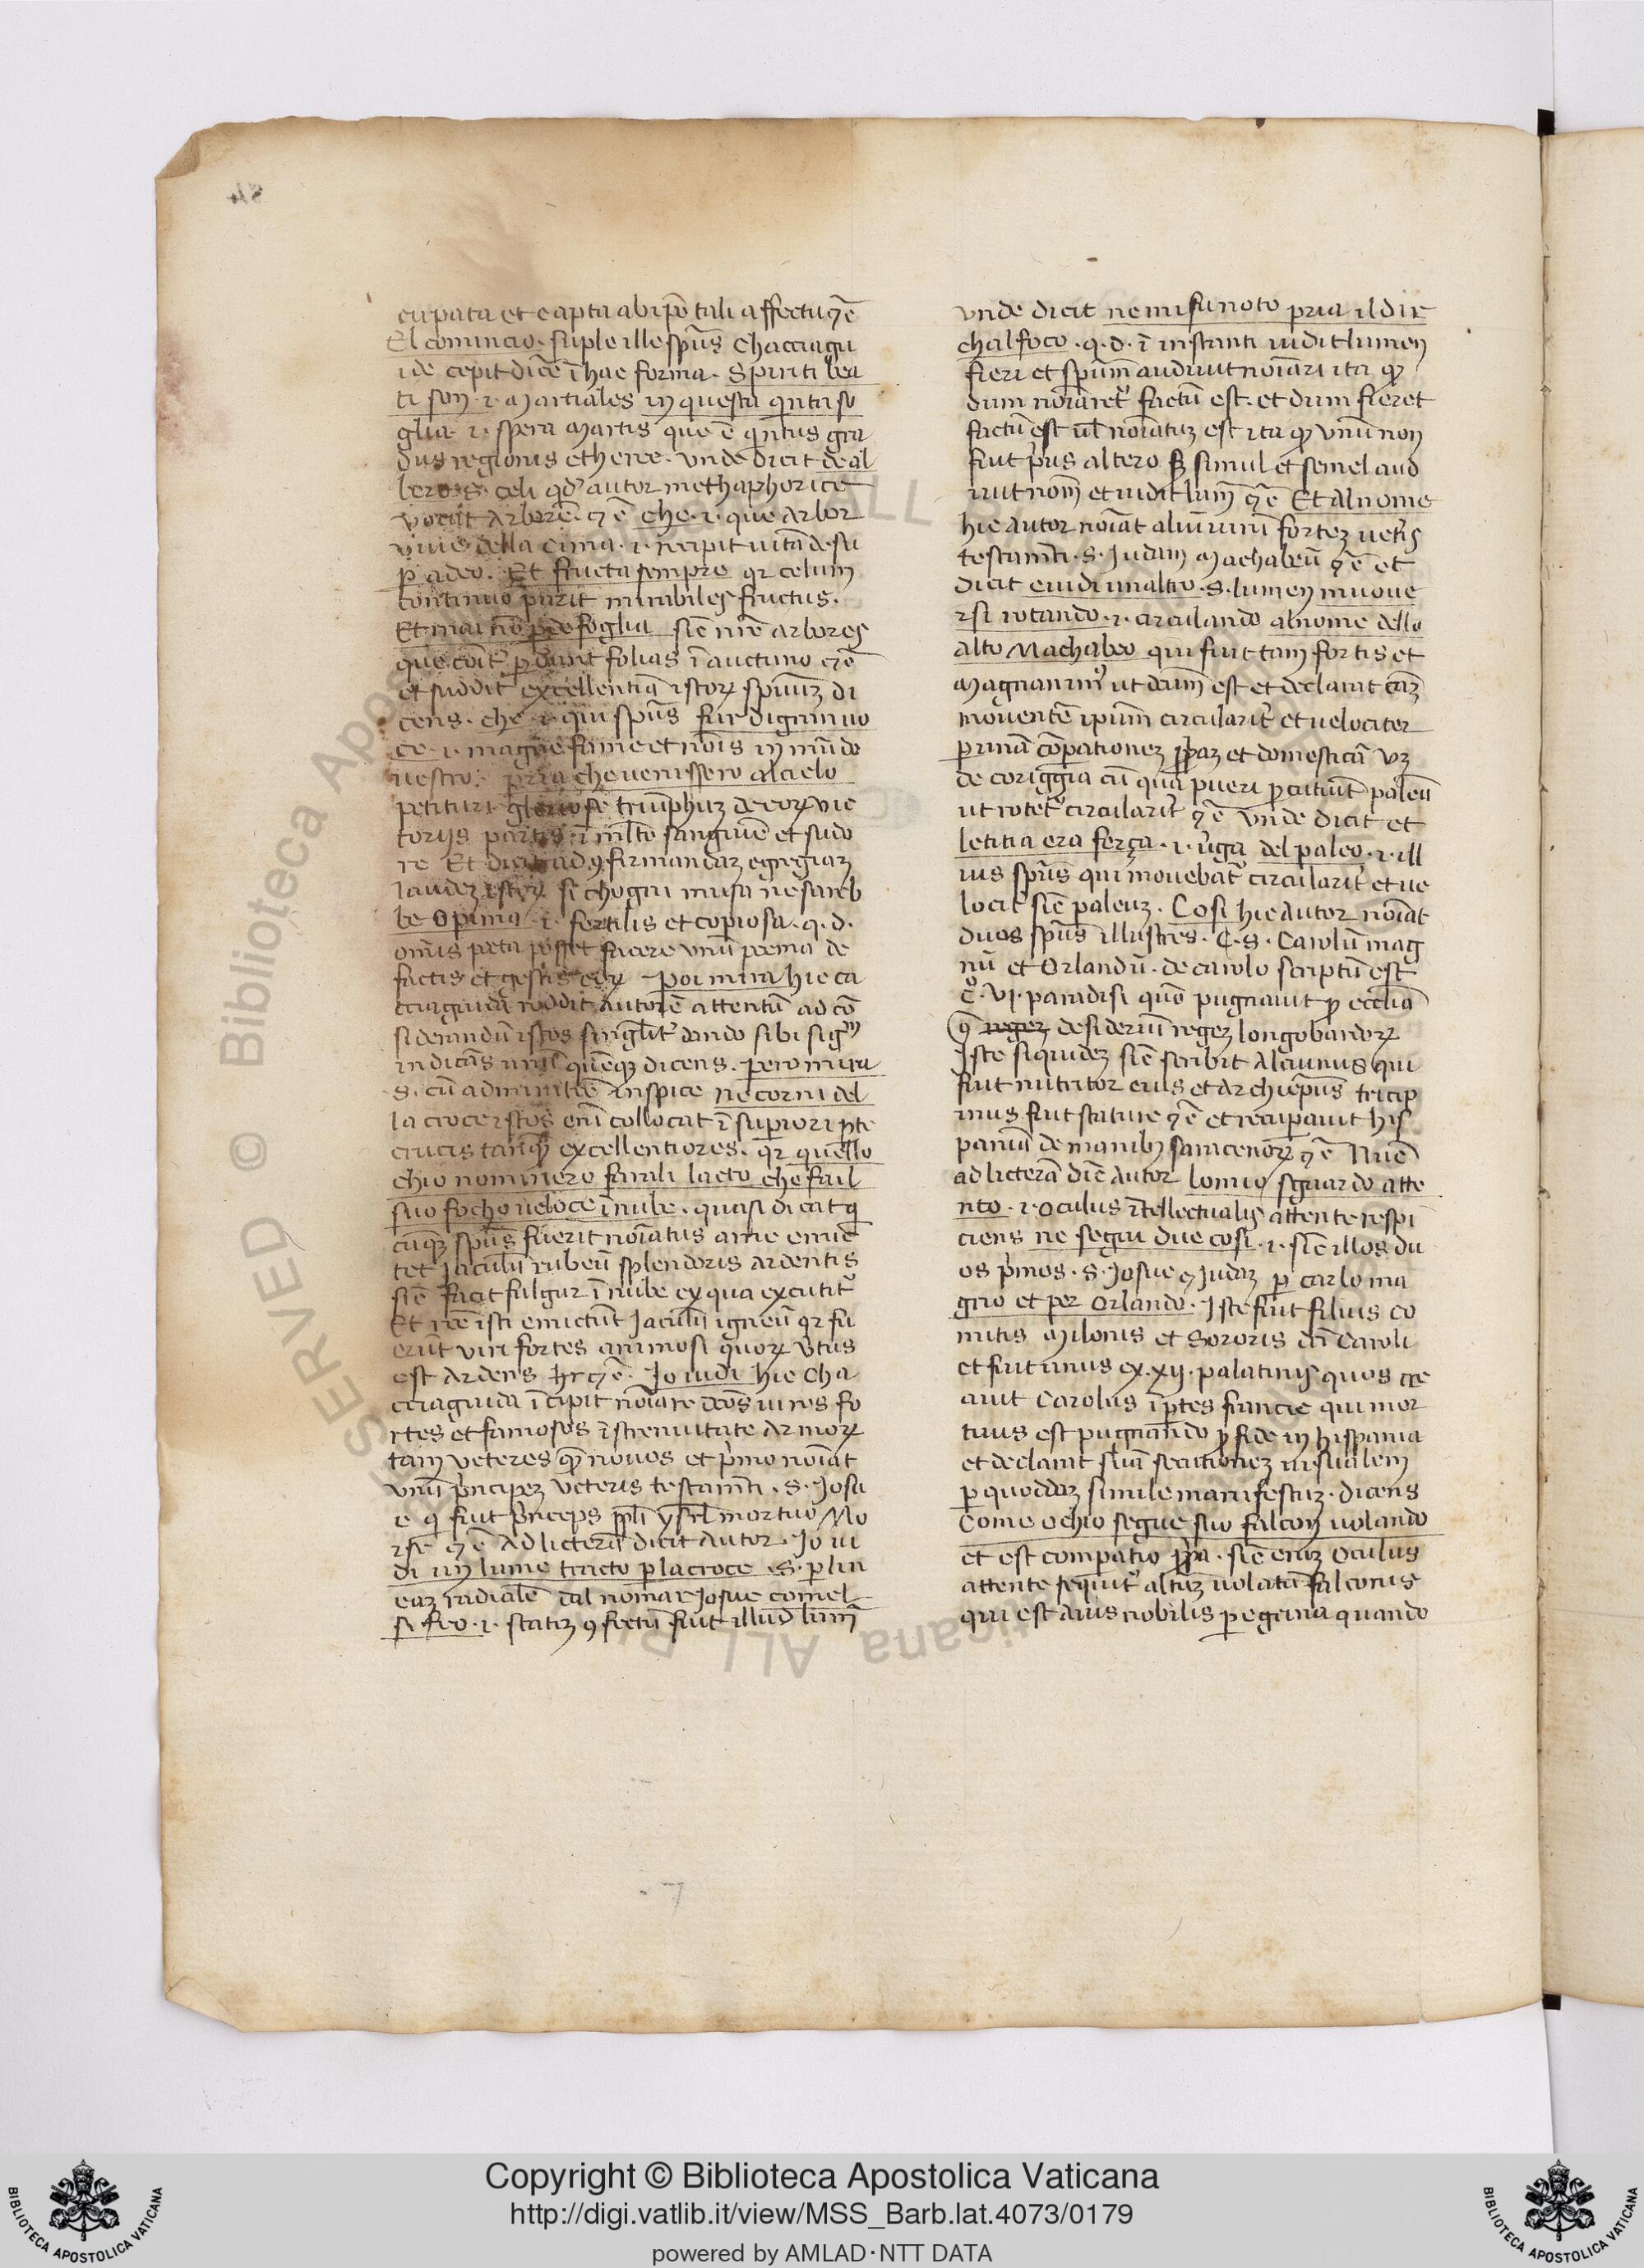 cupata et capta ab ip̄o tali affectu ⁊ cē
El cominciò · suple ille sp̄us Chacciagu
ide cepit dicē ī hac forma · Spiriti bea
ti son · i · Martiales in questa qinta so
glia · i · spera Martis que ē qintus gra
dus regionis etheree · vnde dicit de al
bero · s · celi qd' autor methaphorice
vocat Arborē · ⁊ cē che · i · que Arbor
viue della cima · i · recipit uitā de su
p̱ a deo · Et fructa sempre qr celum
continuo parit mirabiles fructus ·
Et mai nō p̱de foglia sic̄ nrē arbores
que cōit' p̱dunt folias ī auctuno ⁊ cē
et suddit excellentiā istoꝝ spirituuꝫ di
cens · che · i · qui sp̄us fur di gran uo
ce · i · magne fame et nōis in mūdo
nostro · pria che uenissero al cielo
petituri gloriose triumphuꝫ de eoꝝ vic
torijs partis ī mlto sanguine et sudo
re Et dicit ad ꝯfirmandaꝫ egregiaꝫ
laudeꝫ istoꝝ si chogni musa ne sareb
be opima · i · fertilis et copiosa · q · d ·
omīs poeta posset facere vnū poema de
factis et gestis eoꝝ Poi mira hic ca
cciaguida reddit autorē attentū ad cō
siderandū istos singlit' dando sibi sig
indicās quēqꝫ dicens · pero mira
· s · cū admiratiōe inspice ne corni del
la croce istos eni collocat ī supiori pte
crucis tanqꝫ excellentiores · qr quello
chio nominero farali lacto che fa il
suo focho ueloce ī nube · quasi dicat q
cūqꝫ sp̄us fuerit noīatus a me emic
tet Jaculū rubeū splendoris ardentis
sic̄ facit fulgur ī nube ex qua excutit'
Et isti emictūt Jaculū igneū qr fu
erūt viri fortes animosi quoꝝ v̄tus
est Ardens ⁊ cē · Jo uidi hic Cha
cciaguida īcipit noīare uiros fo
rtes et famosos ī strenuitate armoꝝ
tam veteres qꝫ nouos et p'mo noīat
vnū p'ncipeꝫ veteris testamti · s · Josu
e q fuit p'nceps ppli ysrl mortuo Mo
yse ⁊ cē Ad licterā dicit Autor · Jo ui
di un lume tracto p̱ la croce · s · p̱ lin
eaꝫ radialē dal nomar Josue comel
si feo · i · statiꝫ ꝯfectū fuit illud lum̄
vnde dicit ne mi fu noto pria il dir
chal foco · q · d · ī instanti uidit lumen
fieri et sp̄um audiuit noīari ita qꝫ
dum noīaret' factū est · et dum fieret
factū est ul' noīatuꝫ est ita qꝫ vnū non
fuit p'us altero sꝫ simul et semel aud
iuit nom̄ et uidit lum̄ ⁊ cē Et Al nome
hic Autor noīat aliū uirū forteꝫ uet'is
testamti · s · Judam Machabeū ⁊ cē et
dicit e uidi unaltro · s · lumen muoue
rsi rotando · i · circulando al nome dello
alto Machabeo qui fuit tam fortis et
Magnanim' ut dcūm est et declarat cāꝫ
mouentē ipum circularit' et uelociter
p̱ unā cōpationeꝫ ppaꝫ et domesticā vꝫ
de coriggia cū qua pueri p̱cutiūt paleū
ut rotet' circularit' ⁊ cē vnde dicit et
letitia era ferça · i · uirga del paleo · i · ill
ius sp̄us qui mouebat' circularit' et ue
locit' sic̄ paleuꝫ · Cosi hic Autor noīat
duos sp̄us illustres · C · s · Carolū mag
nū et Orlandū · de carolo scriptū est
C° · VJ · paradisi quō pugnauit p ecclīa
ꝯ desideriū regeꝫ longobardoꝝ
Iste siquideꝫ sic̄ scribit Alcuinus qui
fuit nutritor eius et Archiep̄us
mus fuit stature ⁊ cē et recuperauit his
paniā de manibꝫ saracenoꝝ ⁊ cē Nūc
ad licterā dic̄ Autor lo mio sguardo atte
nto · i · oculus ītellectualis attente respi
ciens ne segui due cosi · i · sic̄ illos du
os p'mos · s · Josue ⁊ Judaꝫ p̱ carlo ma
gno et per Orlando · Iste fuit filius co
mitis Milonis et Sororis dn̄i Caroli
et fuit unus ex · xij · palatinis quos cre
auit Carolus ī ptes francie qui mor
tuus est pugnando p fide in hispania
et declarat suā secutioneꝫ uisualem
p̱ quoddaꝫ simile manifestuꝫ · dicens
Come ochio segue suo falcon uolando
et est compatio ppa · sic̄ eniꝫ Oculus
attente sequit' altuꝫ uolatū falconis
qui est Auis nobilis p̱egrina quando
Copyright © Biblioteca Apostolica Vaticana
http://digi.vatlib.it/view/MSS_Barb.lat.4073/0179
powered by AMLAD·NTT DATA